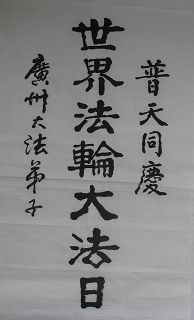 普天同慶
世界法輪大法日
廣州大法弟子